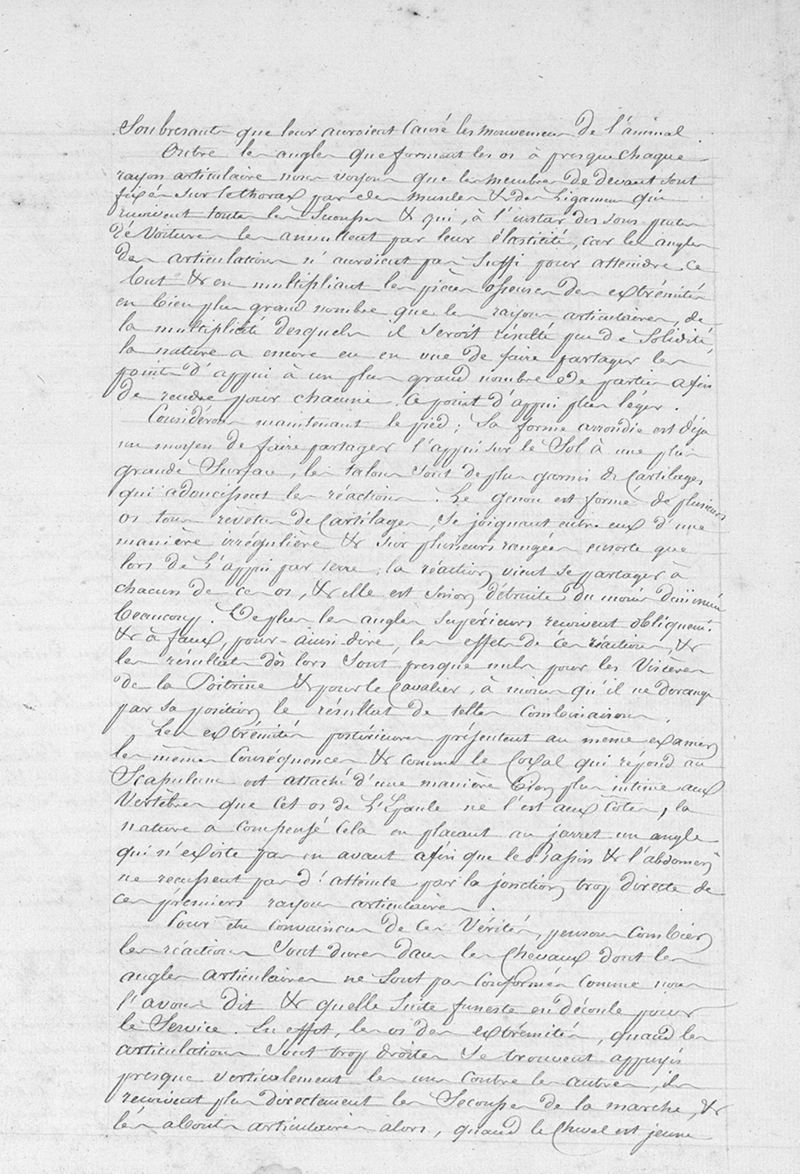 Soubresauts que leur auroient causé les mouvemens de l'animal.
Outre les angles que forment les os à presque chaque
rayon articulaire nous voyons que les membres de devant sont
fixés sur le thorax par des muscles & des Ligamens qui
reçoivent toutes les Secousses & qui, à l'instar des sous-pentes
de Voitures les annullent par leur élasticité, car les angles
des articulations n'auroient pas Suffi pour atteindre ce
but & en multipliant les pièces osseuses des extrémités
en bien plus grand nombre que les rayons articulaires, de
la multiplicité desquels il seroit résulté peu de Solidité,
la nature a encore eu en vue de faire partager les
points d'appui à un plus grand nombre de parties afin
de rendre pour chacune ce point d'appui plus léger.
Considérons maintenant le pied; Sa forme arrondie est déja
un moyen de faire partager l'appui sur le Sol à une plus
grande Surface, les talons sont de plus garnis de Cartilages
qui adoucissent les réactions. Le genou est formé de plusieurs
os tous revêtus de Cartilages, se joignant entre eux d'une
manière irrégulière & sur plusieurs rangées ensorte que
lors de l'appui par terre, la réaction vient se partager à
chacun de ces os, & elle est sinon détruite du moins diminuée
beaucoup. De plus les angles supérieurs reçoivent obliquemt.
& à faux, pour-ainsi-dire, les effets de ces réactions, &
les résultats dès lors sont presque nuls pour les Viscères
de la Poitrine & pour le Cavalier, à moins qu'il ne dérange
par sa position le résultat de telles combinaisons.
Les extrémités postérieures présentent au même examen
les mêmes Conséquences & comme le Coxal qui répond au
Scapulum est attaché d'une manière bien plus intime aux
Vertèbres que cet os de l'Epaule ne l'est aux Cotes, la
nature a compensé cela en placant au jarret un angle
qui n'existe pas en avant afin que le Bassin & l'abdomen
ne recussent pas d'atteinte par la jonction trop directe de
ces premiers rayons articulaires.
Pour être convaincus de ces Vérités, pensons Combien
les réactions sont dures dans les Chevaux dont les
angles articulaires ne sont pas conformés comme nous
l'avons dit & quelle suite funeste en découle pour
le Service. En effet, les os des extrémités, quand les
articulations sont trop droites se trouvent appuyés
presque verticalement les uns contre les autres, ils
reçoivent plus directement les Secousses de la marche, &
les abouts articulaires alors, quand le Cheval est jeune